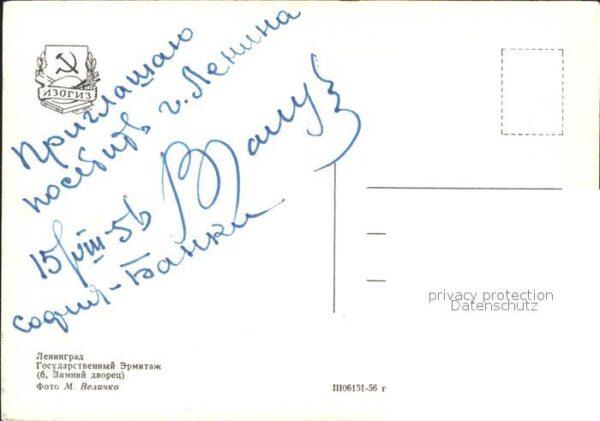 ИЗОГИЗ
Приглашаю
посетить г. Ленина
15/VIII-56
София-Банки
Ленинград
Государственный Эрмитаж
(б. Зимний дворец)
Фото М. Величко
Ш06151-56 г
privacy protection
Datenschutz